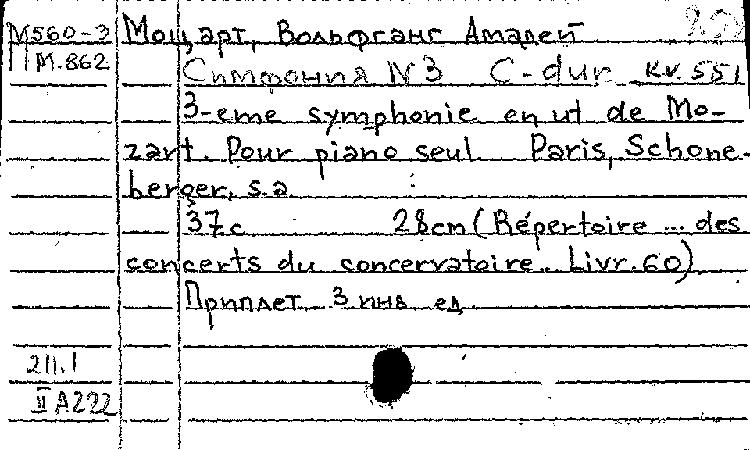 М560-3 Моцарт, Вольфганг Амадей
М.862
Симфония N 3 C-dur KV. 551
3-eme symphonie en ut de Mo-
zart. Pour piano seul. Paris, Schone-
berger, s.a.
37 с 28cm (Répertoire ... des
concerts du concervatoire... Livr. 60)
Приплет. 3 инв ед
211.1
II A222